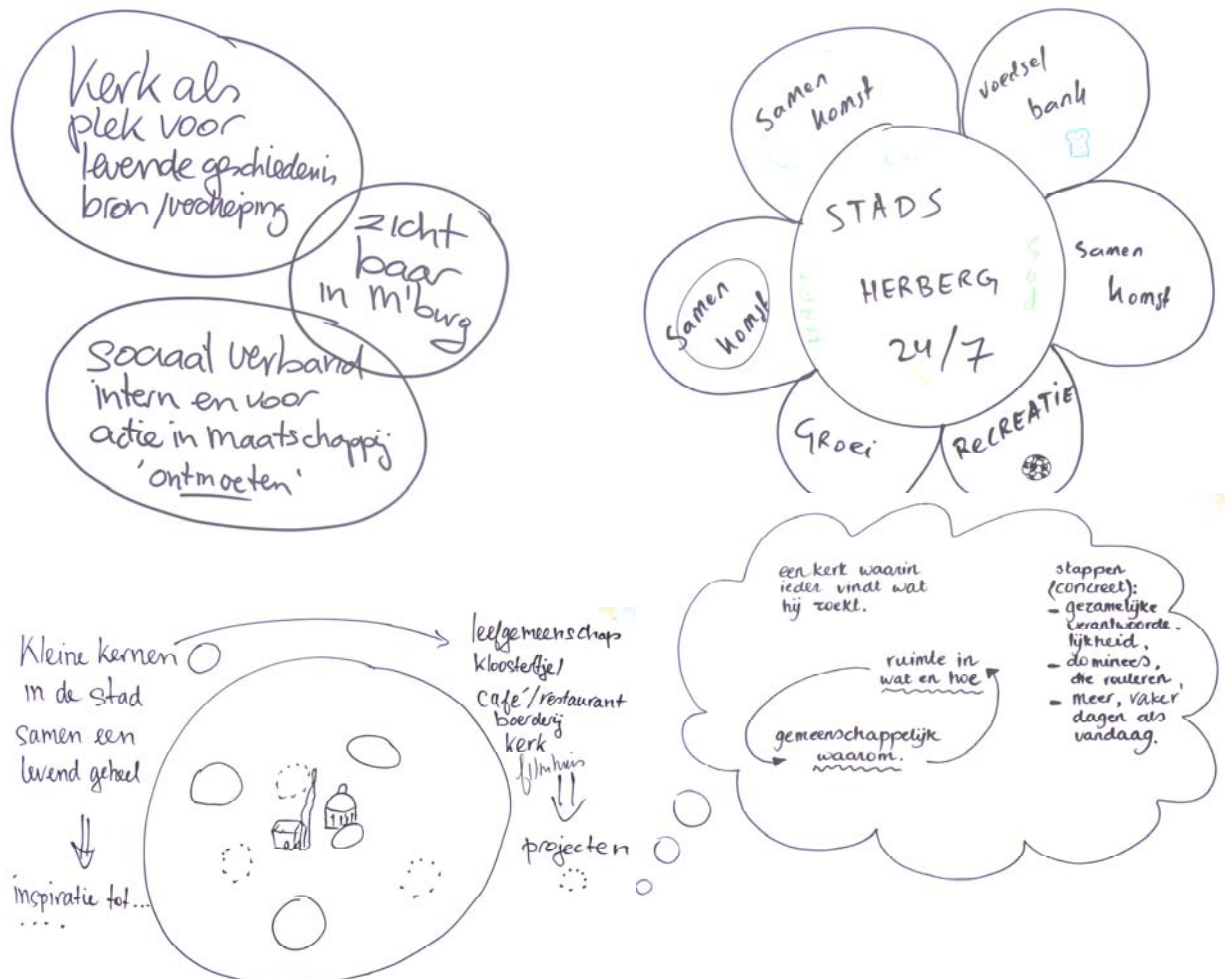 Kerk als
plek voor
levende geschiedenis
bron/verdieping
zicht
baar
in m'burg
sociaal verband
intern en voor
actie in maatschappij
'ontmoeten'
samen
komst
voedsel
bank
STADS
HERBERG
24/7
samen
komst
samen
komst
GROei
ReCREATIE
Kleine kernen
in de stad
samen een
levend geheel
inspiratie tot...
....
leefgemeenschap
klooster(tje)
café/restaurant
boerderij
kerk
filmhuis
projecten
een kerk waarin
ieder vindt wat
hij zoekt.
ruimte in
wat en hoe
gemeenschappelijk
waarom.
stappen
(concreet):
- gezamelijke
verantwoorde-
lijkheid,
- dominees,
die rouleren,
- meer, vaker
dagen als
vandaag.